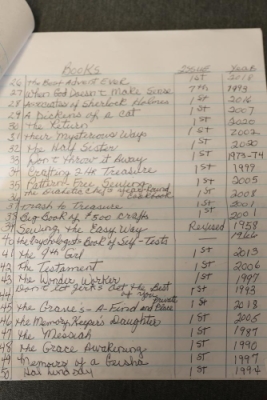 Books Year
26 The Best Advent Ever 1st 2018
27 When God Doesn't Make Sense 7th 1993
28 of Sherlock Holmes 1st 2016
29 A Dickens of a Cat 1st 2007
30 The Return 1st 2020
31 Their Mysterious Ways 1st 2002
32 The Sister 1st 2020
33 Don't Throw it Away 1st 1973-74
34 Crafting 24K Treasure 1st 1999
35 Pattern-Free Sewing 1st 2005
36 The Diabetic's Year-Round Cookbook 1st 2008
37 Trash to Treasure 1st 2001
38 Big Book of $500 Crafts 1st 2001
39 Sewing the Easy Way Revised 1958
40 The Psychologist's Book of Self-Tests 1966
41 The 9th Girl 1st 2013
42 The Testament 1st 2006
43 The Wonder Worker 1st 1997
44 Don't Let Jerks Get The Best of You 1st 1993
45 The Grave's A Fine and Private Place 1st 2018
46 The Memory Keeper's Daughter 1st 2005
47 The Messiah 1st 1987
48 The Grace Awakening 1st 1990
49 Memoirs of a Geisha 1st 1997
50 Hal Lindsay 1st 1994